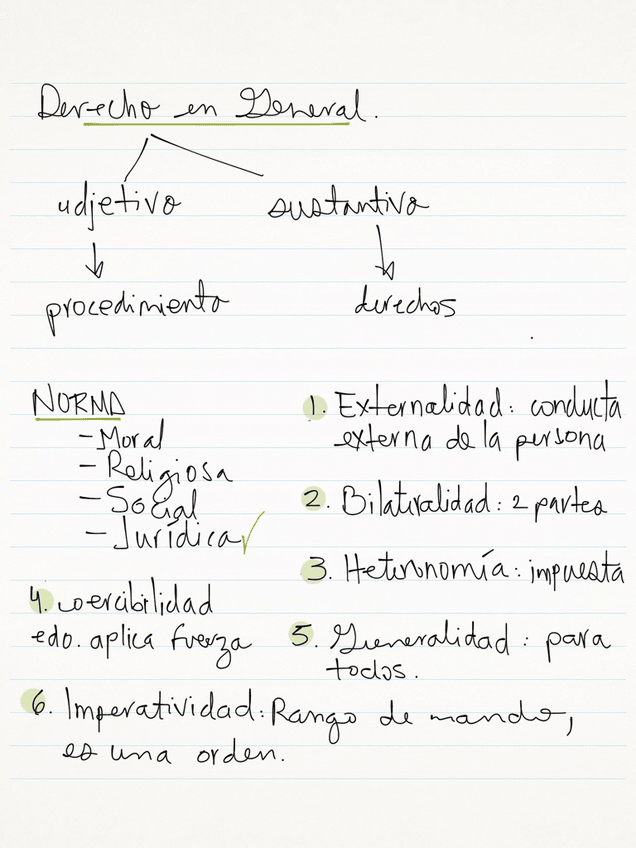 Derecho en General.
adjetivo sustantivo
procedimiento derechos
NORMA
- Moral
- Religiosa
- Social
- Jurídica ✓
1. Externalidad: conducta
externa de la persona
2. Bilateralidad: 2 partes
3. Heteronomía: impuesta
4. coercibilidad
edo. aplica fuerza
5. Generalidad: para
todos.
6. Imperatividad: Rango de mando,
es una orden.